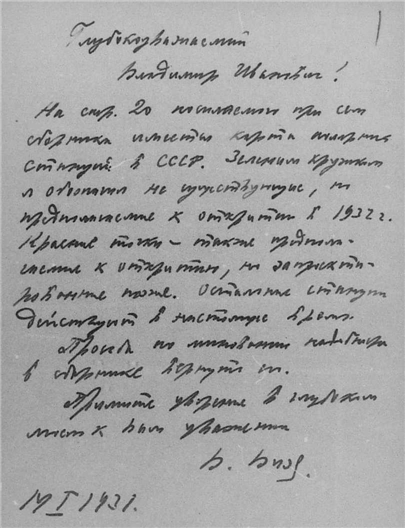 Глубокоуважаемый
Владимир Иванович!
На стр. 20 посылаемого при сем
сборника имеется карта полярных
станций в СССР. Зеленым кружком
я обозначил не существующие, но
предполагаемые к открытию в 1932 г.
Красные точки – также предпола-
гаемые к открытию, но запроекти-
рованные позже. Остальные станции
действуют в настоящее время.
Просьба по миновании надобности
в сборнике вернуть его.
Примите уверение в глубоком
моем к Вам уважении
В. Визе.
I 1931.